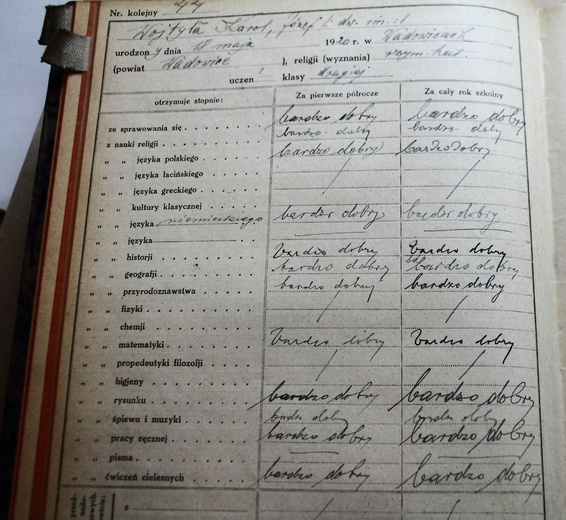 Nr. kolejny 44
Wojtyła Karol, Józef 2 dw. im.
urodzony dnia 18 maja 1920 r. w Wadowicach
(powiat Wadowice ), religii (wyznania) rzym. kat.
uczeń klasy drugiej
otrzymuje stopnie: Za pierwsze półrocze Za cały rok szkolny
ze sprawowania się bardzo dobry bardzo dobry
z nauki religii bardzo dobry bardzo dobry
" " języka polskiego bardzo dobry bardzo dobry
" " języka łacińskiego
" " języka greckiego
" " kultury klasycznej
" " języka niemieckiego bardzo dobry bardzo dobry
" " języka
" " historji bardzo dobry bardzo dobry
" " geografji bardzo dobry bardzo dobry
" " przyrodoznawstwa bardzo dobry bardzo dobry
" " fizyki
" " chemji
" " matematyki bardzo dobry bardzo dobry
" " propedeutyki filozofji
" " higjeny
" " rysunku bardzo dobry bardzo dobry
" " śpiewu i muzyki bardzo dobry bardzo dobry
" " pracy ręcznej bardzo dobry bardzo dobry
" " pisma
" " ćwiczeń cielesnych bardzo dobry bardzo dobry
z